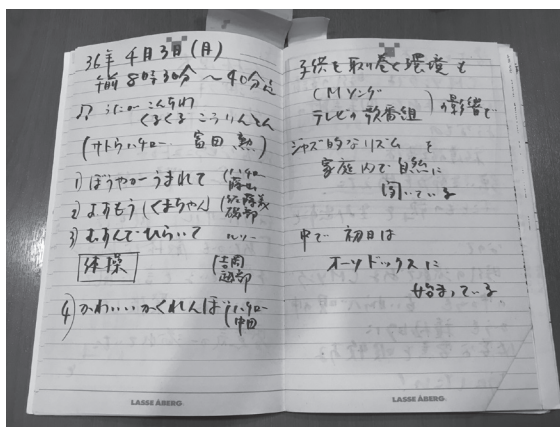 36年 4月3日(月)
午前 8時30分 〜40分迄
♪ うたの こんすけ
くるくる こうりんとん
(サトウハチロー 富田 勲)
1) ぼうやがうまれて (ハチロー
2) よおもう(くまちゃん) (佐藤義
磯部
3) むすんでひらいて ルソー
体操 (吉岡
越部
4) かわいいかくれんぼ (ハチロー
中田
LASSE ÅBERG
子供を取り巻く環境も
(CMソング
テレビの歌番組)の影響で
ジャズ的なリズムを
家庭内で自然に
聞いている
中で 初日は
オーソドックスに
始まっている
LASSE ÅBERG